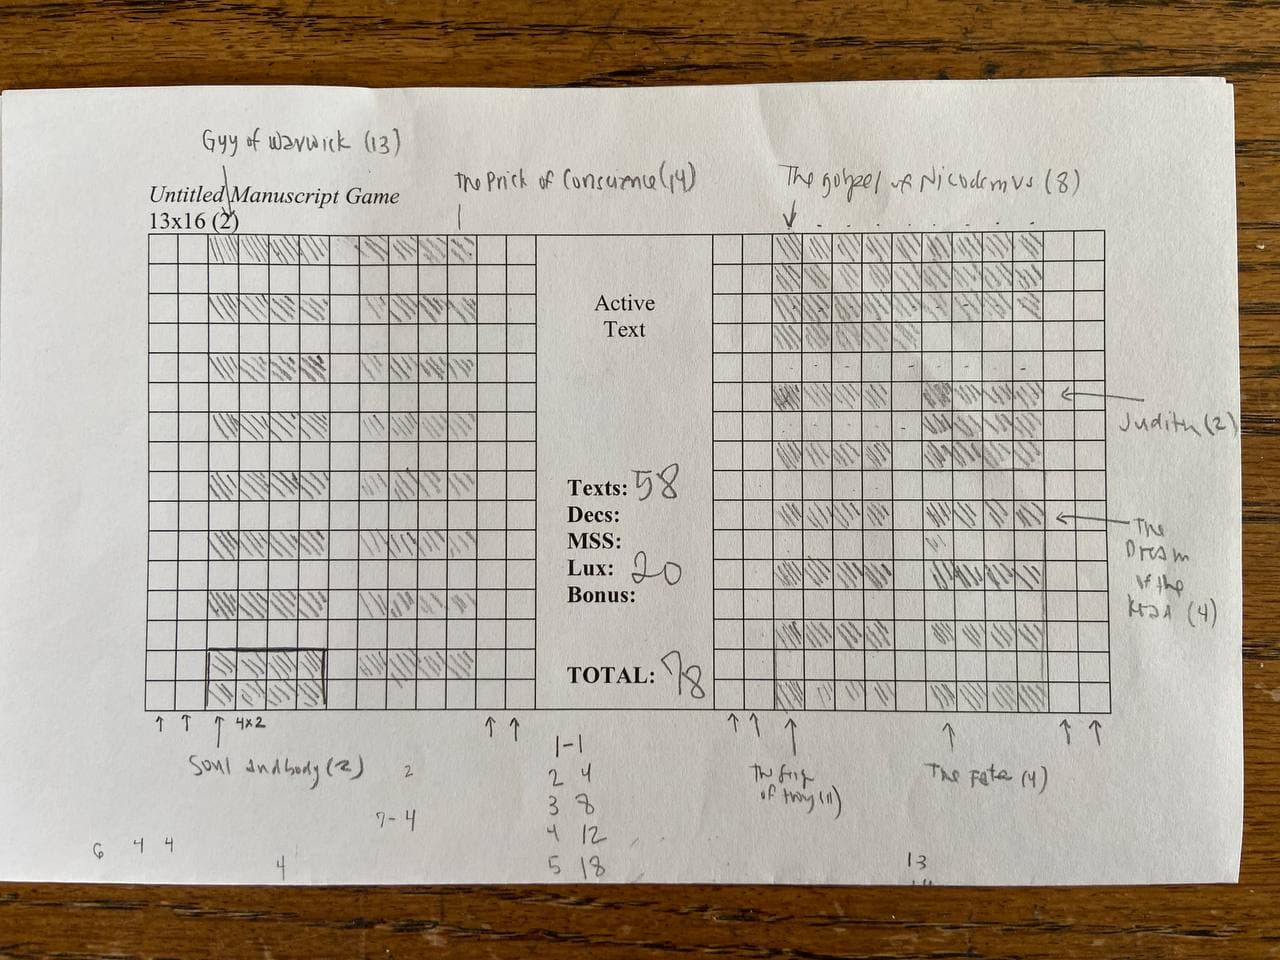 Gyy of Warwick (13)
The Prick of Conscience (14)
The gospel of Nicodemus (8)
Untitled Manuscript Game
13x16 (2)
Active
Text
Judith (2)
Texts: 58
Decs:
MSS:
Lux: 20
Bonus:
The
Dream
of the
(4)
TOTAL: 78
4x2
Soul and body (2)
2
7-4
6 4 4
4
1-1
2 4
3 8
4 12
5 18
of troy (11)
The Fate (4)
13